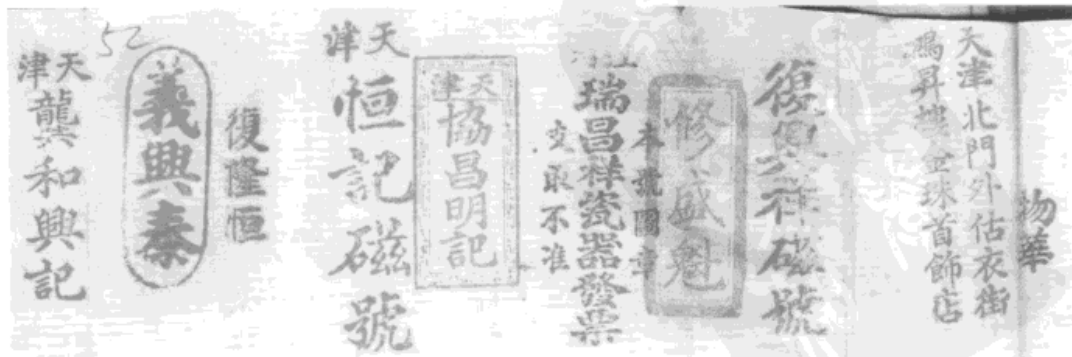 物華
天津北門外估衣街
鴻昇樓金珠首飾店
復興祥磁號
修盛魁
本號圖章
瑞昌祥瓷器發票
支取不准
天津
協昌明記
天津
恒記磁號
復隆恒
義興泰
52
天津
龔和興記